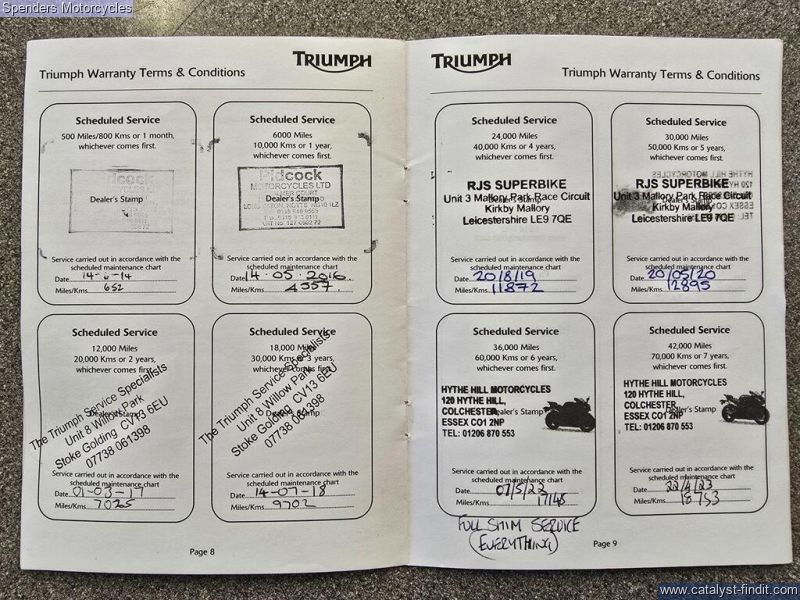 Spenders Motorcycles
TRIUMPH
Triumph Warranty Terms & Conditions
Scheduled Service
500 Miles/800 Kms or 1 month,
whichever comes first.
Dealer's Stamp
Service carried out in accordance with the
scheduled maintenance chart
Date 14-6-14
Miles/Kms 652
Scheduled Service
6000 Miles
10,000 Kms or 1 year,
whichever comes first.
Pidcock
MOTORCYCLES LTD
Dealer's Stamp
Service carried out in accordance with the
scheduled maintenance chart
Date 14.05.2016.
Miles/Kms 4557.
Scheduled Service
12,000 Miles
20,000 Kms or 2 years,
whichever comes first.
The Triumph Service Specialists
Unit 8 Willow Park
Stoke Golding CV13 6EU
07738 061398
Dealer's Stamp
Service carried out in accordance with the
scheduled maintenance chart
Date 01-03-17
Miles/Kms 7025
Scheduled Service
18,000 Miles
30,000 Kms or 3 years,
whichever comes first.
The Triumph Service Specialists
Unit 8 Willow Park
Stoke Golding CV13 6EU
07738 061398
Dealer's Stamp
Service carried out in accordance with the
scheduled maintenance chart
Date 14-07-18
Miles/Kms 9702
Page 8
TRIUMPH
Triumph Warranty Terms & Conditions
Scheduled Service
24,000 Miles
40,000 Kms or 4 years,
whichever comes first.
RJS SUPERBIKE
Unit 3 Mallory Park Race Circuit
Dealer's Stamp
Kirkby Mallory
Leicestershire LE9 7QE
Service carried out in accordance with the
scheduled maintenance chart
Date 20/8/19
Miles/Kms 11872
Scheduled Service
30,000 Miles
50,000 Kms or 5 years,
whichever comes first.
RJS SUPERBIKE
Unit 3 Mallory Park Race Circuit
Dealer's Stamp
Kirkby Mallory
Leicestershire LE9 7QE
Service carried out in accordance with the
scheduled maintenance chart
Date 20/05/20
Miles/Kms 12895
Scheduled Service
36,000 Miles
60,000 Kms or 6 years,
whichever comes first.
HYTHE HILL MOTORCYCLES
120 HYTHE HILL,
COLCHESTER,
Dealer's Stamp
ESSEX CO1 2NP
TEL: 01206 870 553
Service carried out in accordance with the
scheduled maintenance chart
Date 07/5/22
Miles/Kms 17148
FULL SHIM SERVICE
(EVERYTHING)
Scheduled Service
42,000 Miles
70,000 Kms or 7 years,
whichever comes first.
HYTHE HILL MOTORCYCLES
120 HYTHE HILL,
COLCHESTER,
Dealer's Stamp
ESSEX CO1 2NP
TEL: 01206 870 553
Service carried out in accordance with the
scheduled maintenance chart
Date 22/4/23
Miles/Kms 18753
Page 9
www.catalyst-findit.com